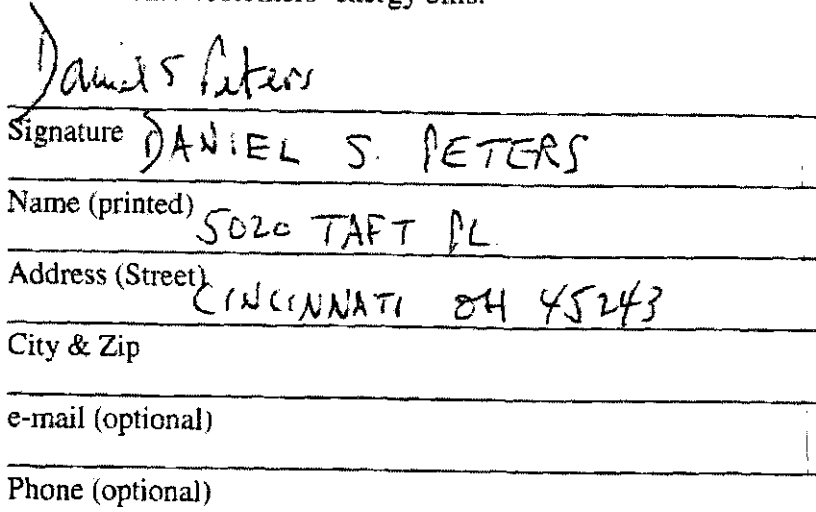 customers' energy bills.
Daniel S Peters
Signature DANIEL S. PETERS
Name (printed) 5020 TAFT PL.
Address (Street) CINCINNATI OH 45243
City & Zip
e-mail (optional)
Phone (optional)